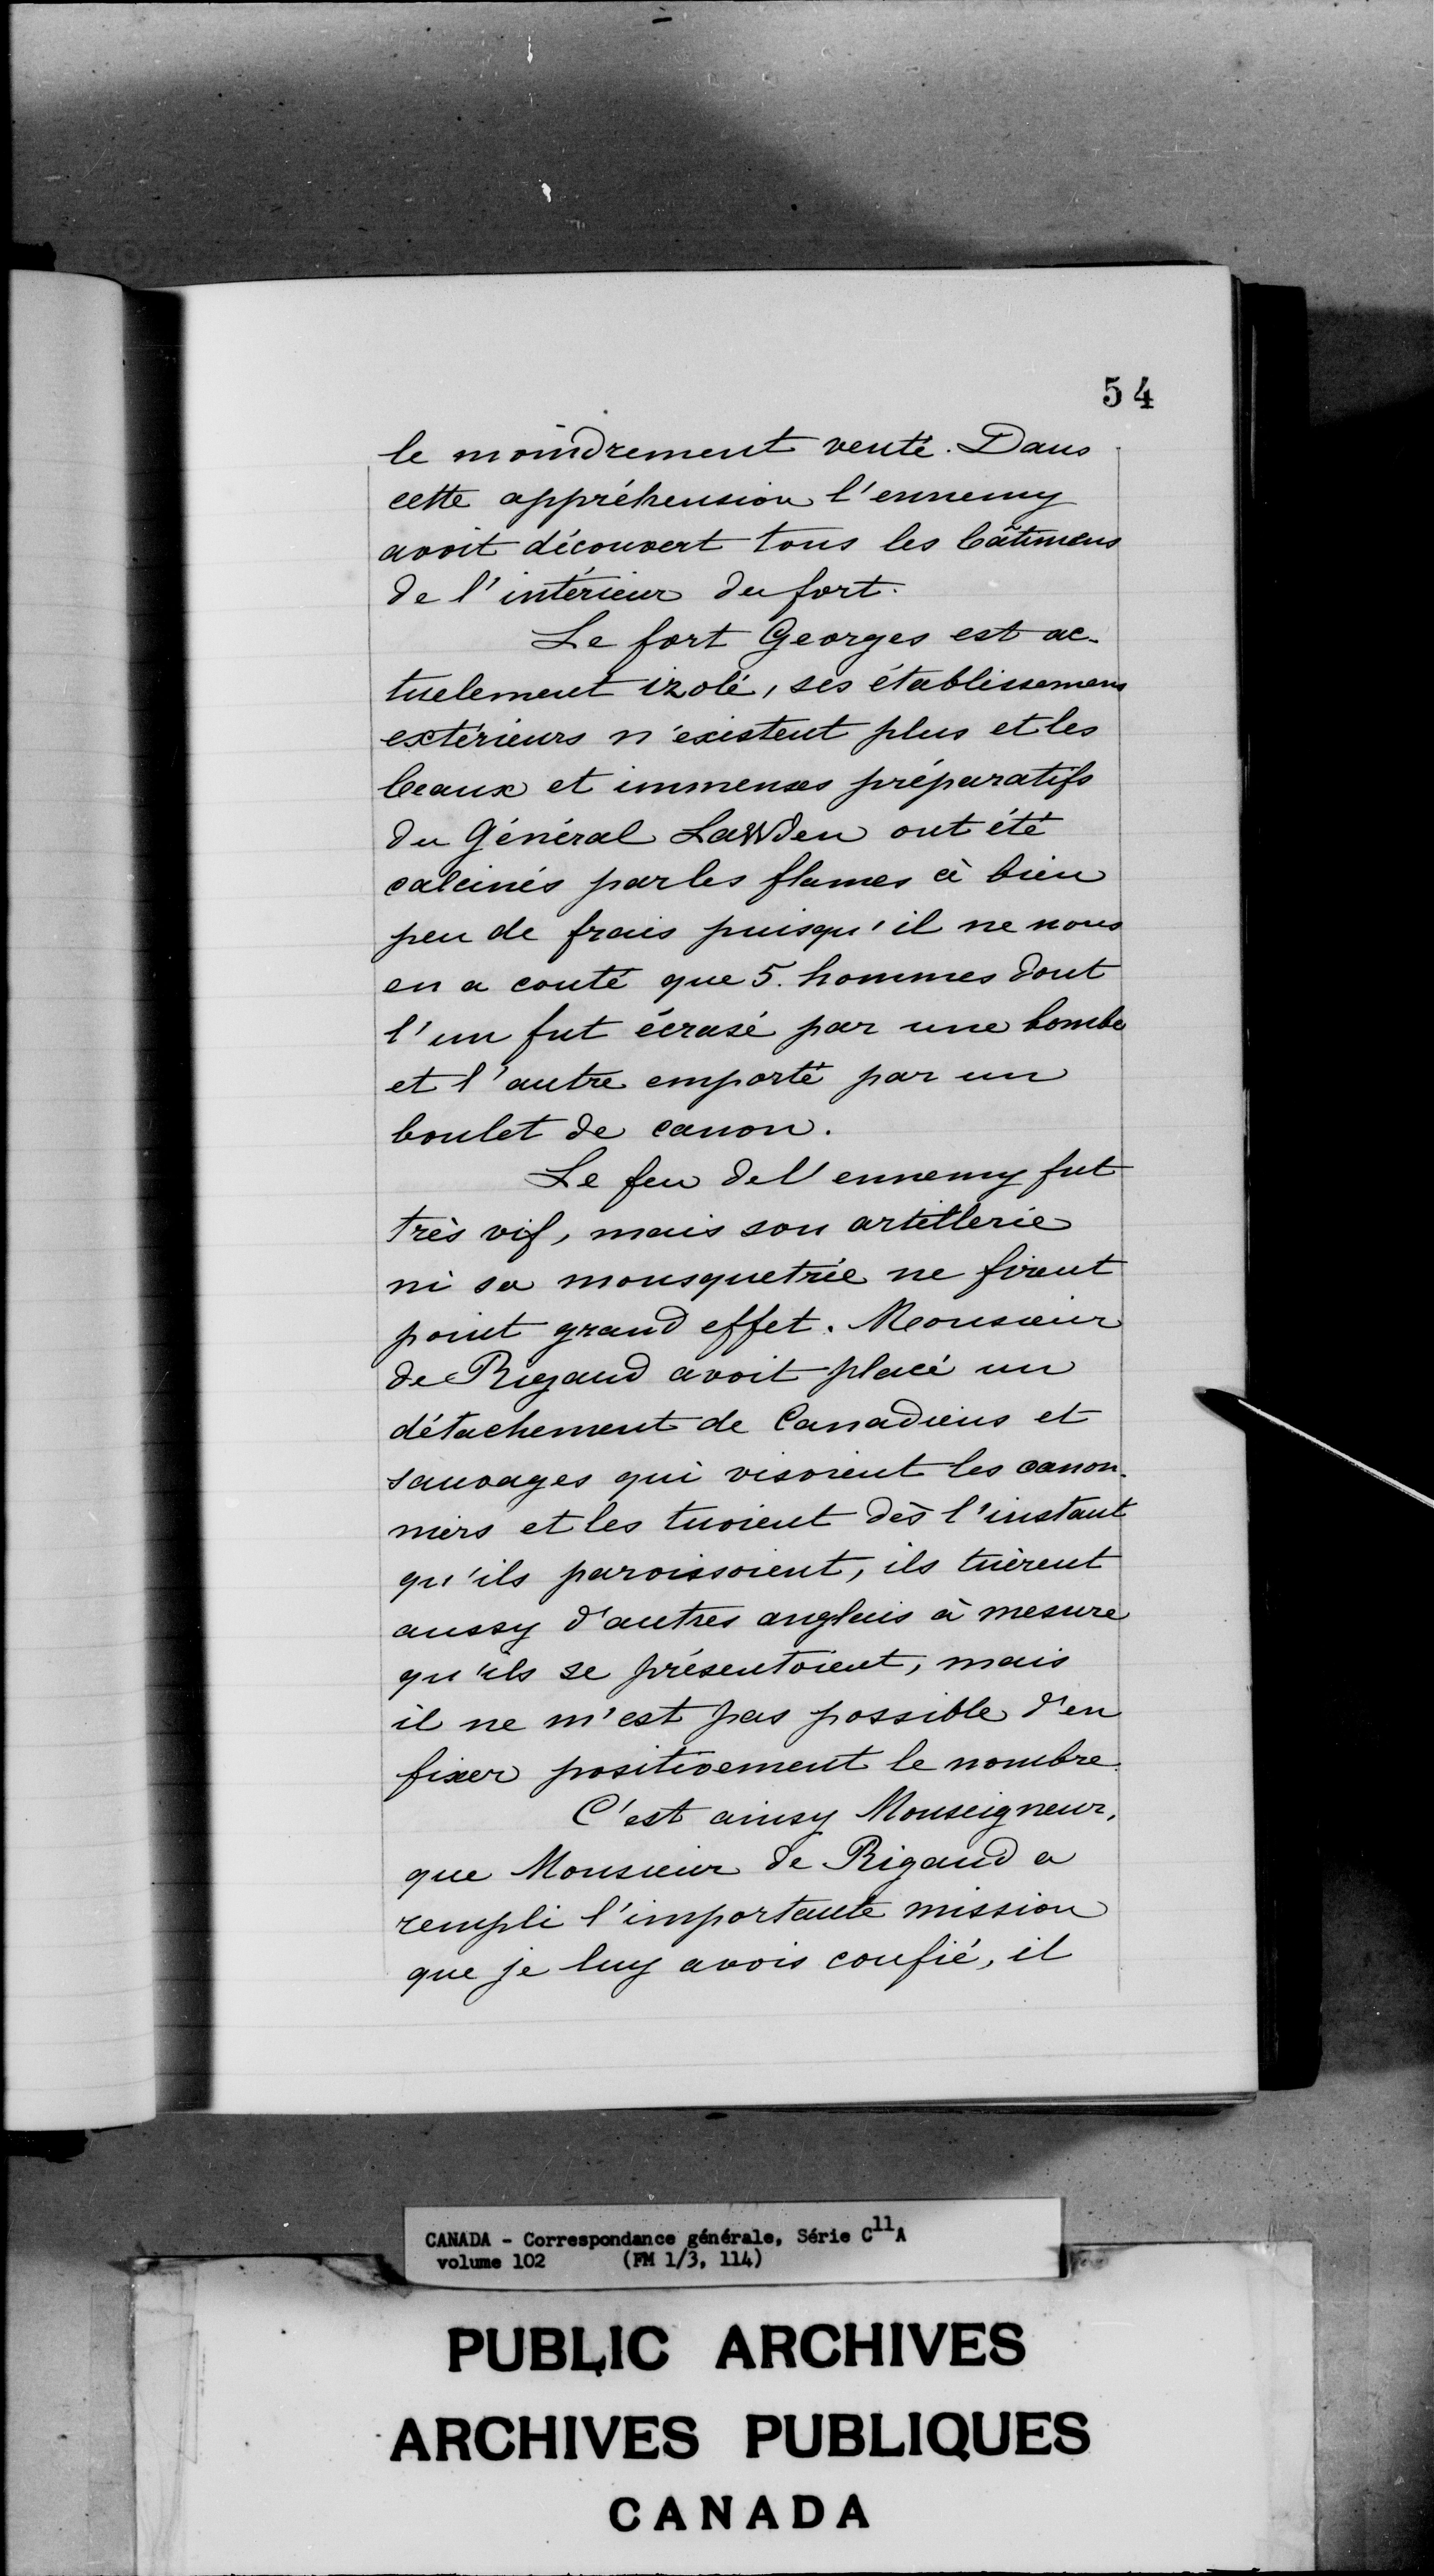 54
le moindrement venté. Dans
cette appréhension l'ennemy
avoit découvert tous les bâtimens
de l'intérieur du fort.
Le fort Georges est ac-
tuelement izolé, ses établissemens
extérieurs n'existent plus et les
beaux et immenses préparatifs
du Général Lawden ont été
calcinés par les flames à bien
peu de frais puisqu'il ne nous
en a couté que 5. hommes dont
l'un fut écrasé par une bombe
et l'autre emporté par un
boulet de canon.
Le feu de l'ennemy fut
très vif, mais son artillerie
ni sa mousquetrie ne firent
point grand effet. Monsieur
de Rigaud avoit placé un
détachement de Canadiens et
sauvages qui visoient les canon-
niers et les tuoient dès l'instant
qu'ils paroissoient, ils tuèrent
aussy d'autres anglais à mesure
qu'ils se présentoient, mais
il ne m'est pas possible d'en
fixer positivement le nombre.
C'est ainsy Monseigneur,
que Monsieur de Rigaud a
rempli l'importante mission
que je luy avois confié, il
CANADA - Correspondance générale, Série C11A
volume 102 (FM 1/3, 114)
PUBLIC ARCHIVES
ARCHIVES PUBLIQUES
CANADA